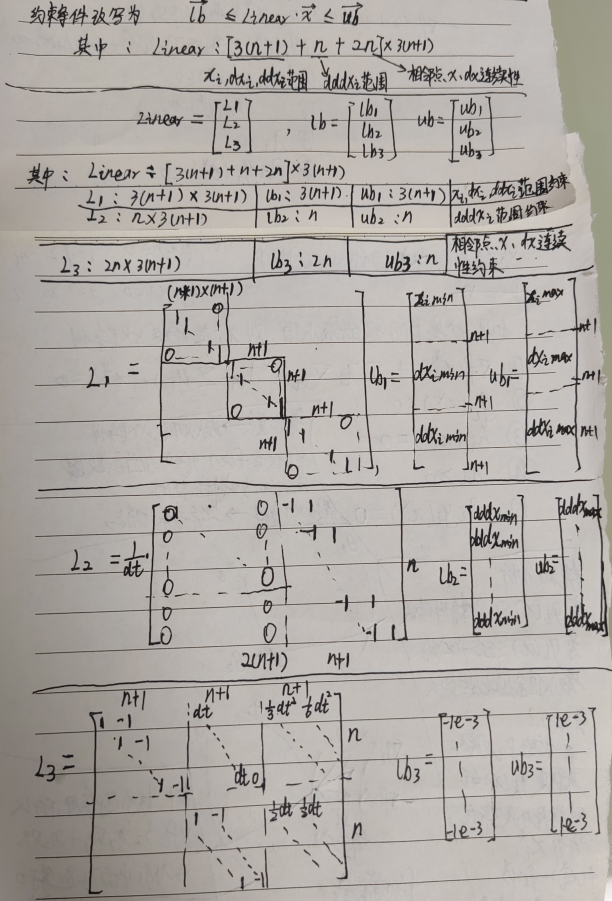 约束条件改写为 lb ≤ Linear·x ≤ ub
其中: Linear: [3(n+1) + n + 2n] × 3(n+1)
xi, dxi, ddxi范围 dddxi范围 相邻点x、dx连续性
Linear = [L1 L2 L3], lb = [lb1 lb2 lb3] ub = [ub1 ub2 ub3]
其中: Linear ÷ [3(n+1) + n + 2n] × 3(n+1)
L1: 3(n+1) × 3(n+1) | lb1: 3(n+1) | ub1: 3(n+1) | xi, dxi, ddxi范围约束
L2: n × 3(n+1) | lb2: n | ub2: n | dddxi范围约束
L3: 2n × 3(n+1) | lb3: 2n | ub3: n | 相邻点x、dx连续
性约束
(n+1)×(n+1)
1 0
1
0 1 1
n+1
1 0
1
0 1
n+1
n+1
n+1
1 0
1
0 1 1
L1 = , lb1 = [ximin dximin ddximin] n+1 n+1 n+1 ub1 = [ximax dximax ddximax] n+1 n+1 n+1
L2 = 1/dt ·
0 0 -1 1
0 0 -1 1
0 0
0 0 -1 1
0 0 -1 1
n
2(n+1) n+1
lb2 = [dddxmin dddxmin dddxmin] ub2 = [dddxmax dddxmax]
n+1 n+1 n+1
L3 =
1 -1 dt 1/3dt² 1/6dt²
1 -1
1 -1 dt 0
n
1 -1 1/2dt 1/2dt
1 -1
n
lb3 = [-1e-3 -1e-3] ub3 = [1e-3 1e-3]